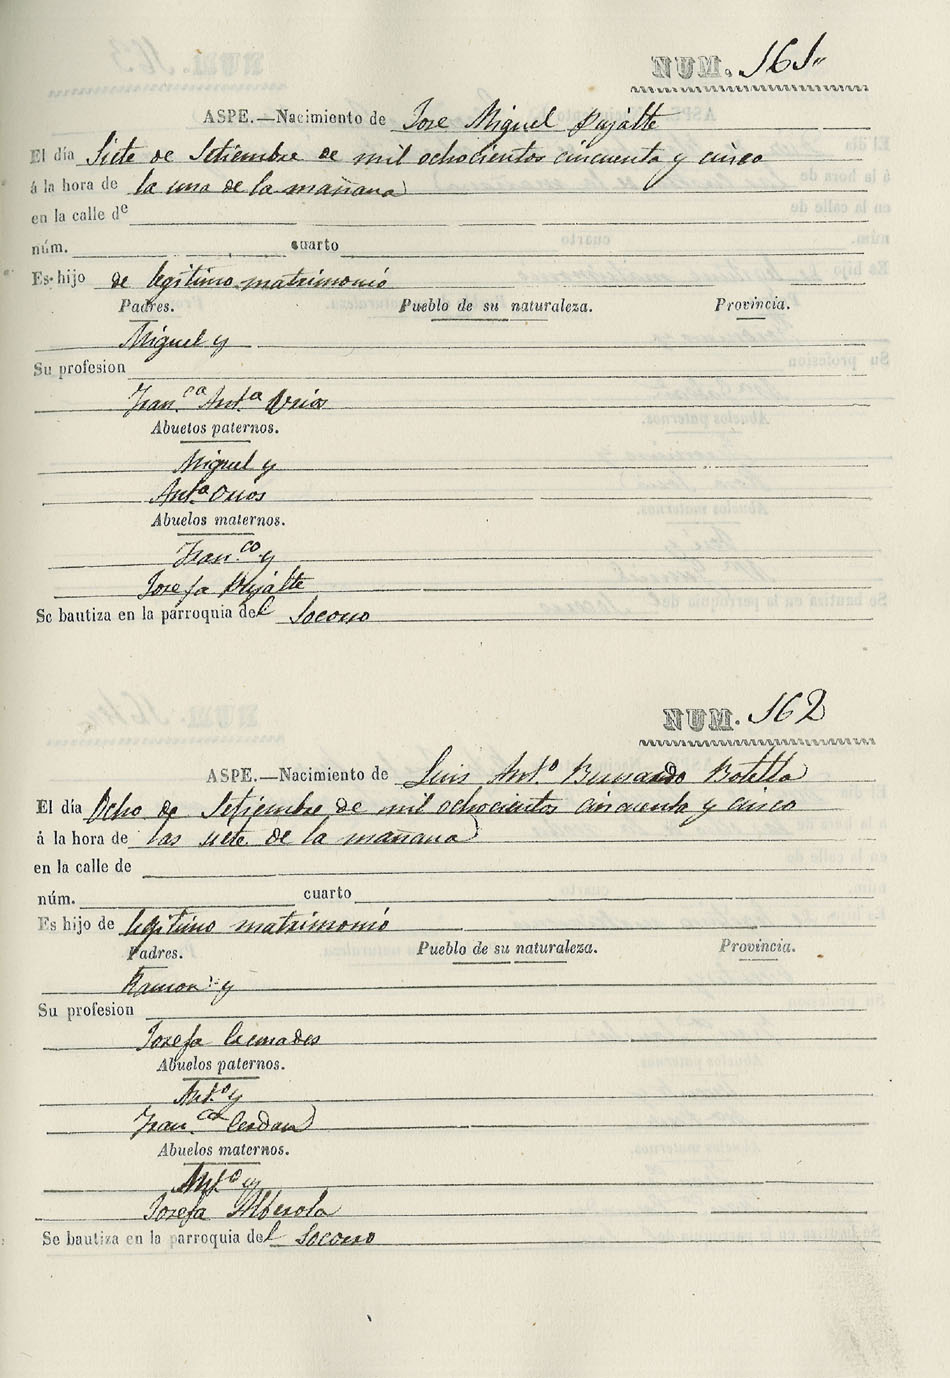 NUM. 161.
ASPE.—Nacimiento de Jose Miguel Pujalte
El día Siete de Setiembre de mil ochocientos cincuenta y cinco
á la hora de la una de la mañana
en la calle de
núm. cuarto
Es hijo de legitimo matrimonio
Padres. Pueblo de su naturaleza. Provincia.
Miguel y
Su profesion
Fran.ca Ant.a Orios
Abuelos paternos.
Miguel y
Ant.a Orios
Abuelos maternos.
Fran.co y
Josefa Pujalte
Se bautiza en la parroquia del Socorro
NUM. 162
ASPE.—Nacimiento de Luis Ant.o Bernardo Botella
El día Ocho de Setiembre de mil ochocientos cincuenta y cinco
á la hora de las siete de la mañana
en la calle de
núm. cuarto
Es hijo de legitimo matrimonio
Padres. Pueblo de su naturaleza. Provincia.
Ramon y
Su profesion
Josefa Cremades
Abuelos paternos.
Ant.o y
Fran.ca Cerdan
Abuelos maternos.
Ant.o y
Josefa Alberola
Se bautiza en la parroquia del Socorro